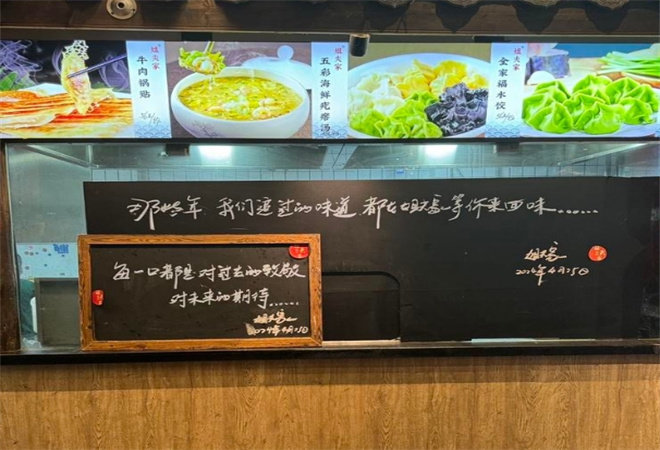 姐夫家
牛肉锅贴
五彩海鲜疙瘩汤
姐夫家
全家福水饺
那些年 我们追过的味道,都在姐夫家等你来回味……
姐夫家
2024年4月25日
每一口都是对过去的致敬
对未来的期待……
姐夫家
2024年4月25日